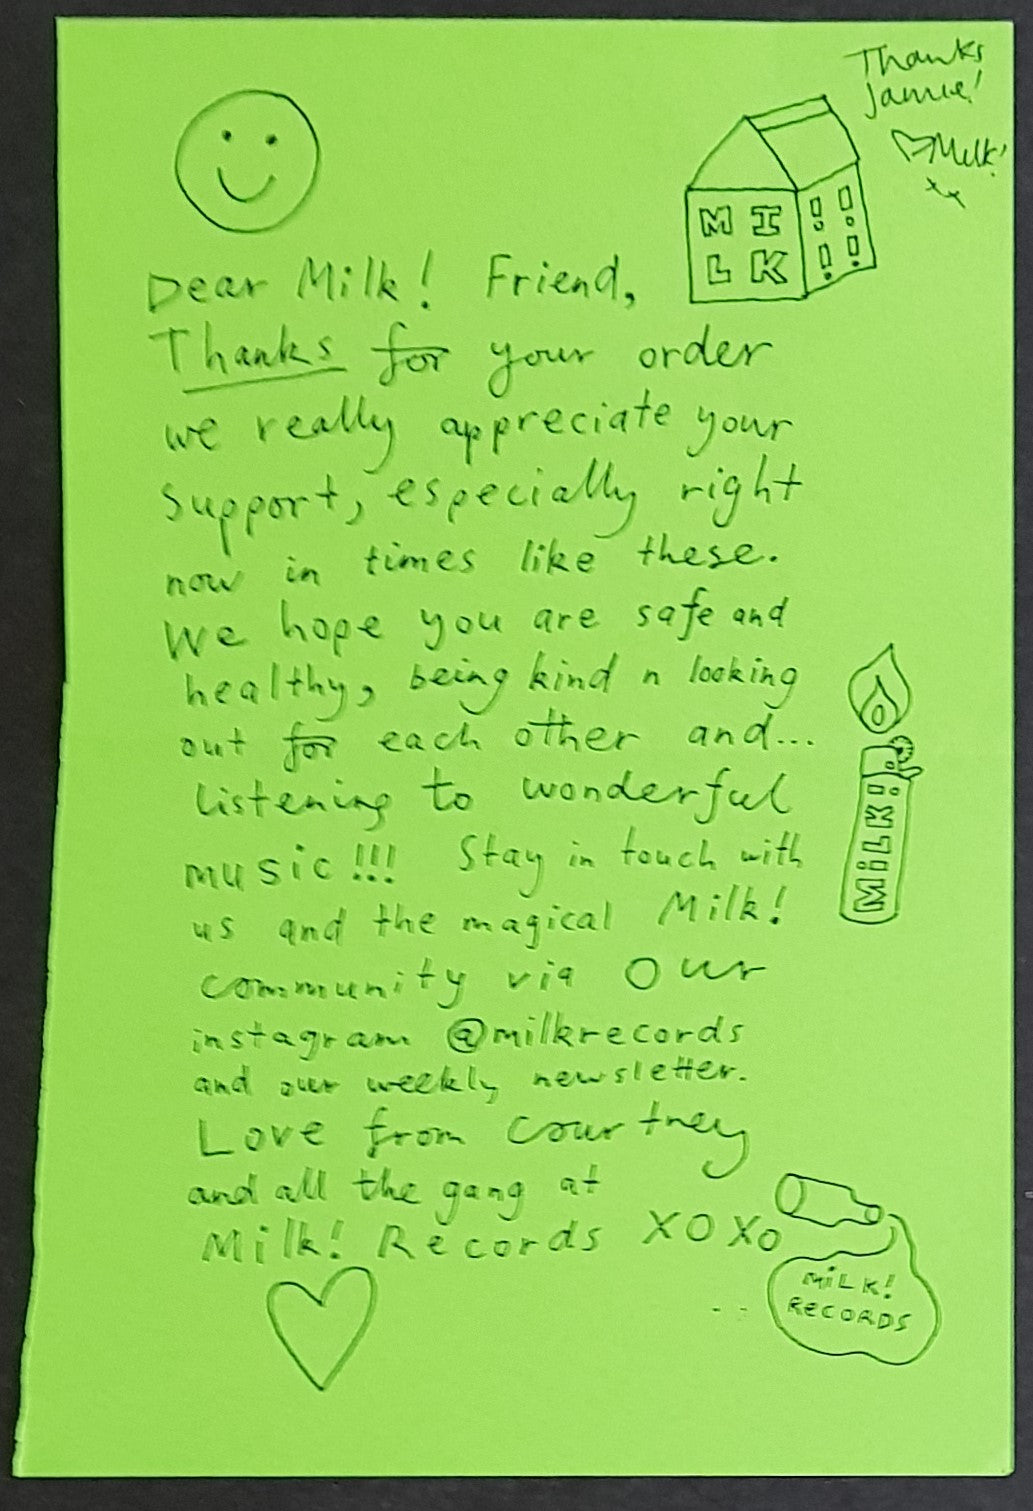 Thanks
Jamie!
♡Milk!
xx
MI
LK
!!
!!
Dear Milk! Friend,
Thanks for your order
we really appreciate your
support, especially right
now in times like these.
We hope you are safe and
healthy, being kind n looking
out for each other and...
listening to wonderful
music!!! Stay in touch with
us and the magical Milk!
community via our
instagram @milkrecords
and our weekly newsletter.
Love from Courtney
and all the gang at
Milk! Records XOXO
MiLK!
MiLK!
RECORDS